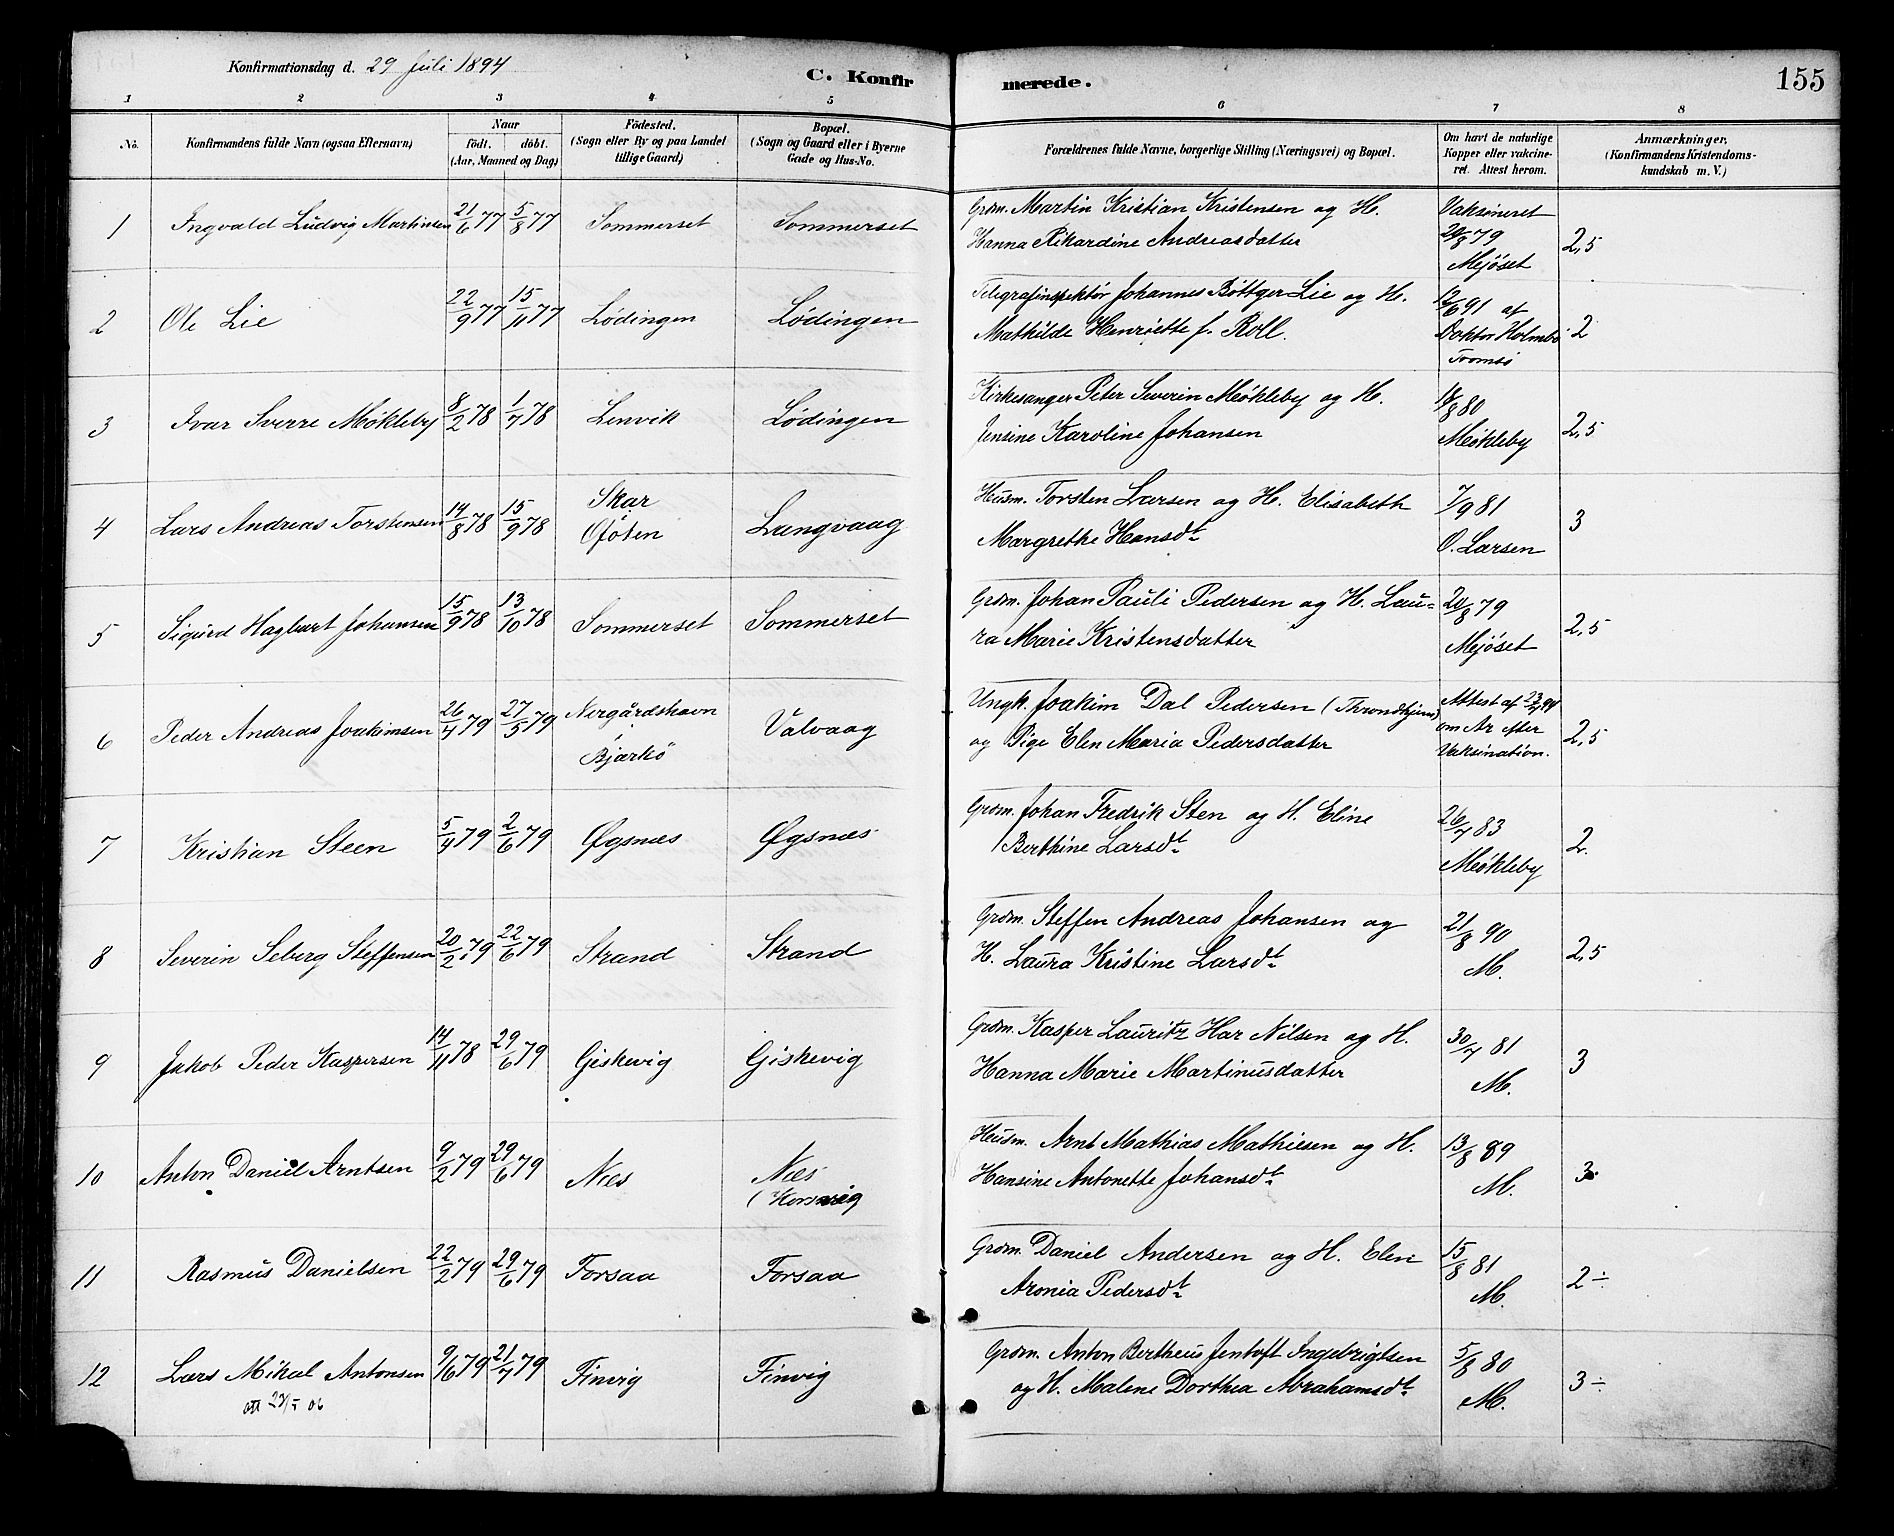 Konfirmationsdag d. 29 Juli 1894
C. Konfirmerede.
155
1 2 3 4 5 6 7 8
No. Konfirmandens fulde Navn (ogsaa Efternavn) Naar födt. döbt. (Aar, Maaned og Dag) Födested. (Sogn eller By og paa Landet tillige Gaard) Bopæl. (Sogn og Gaard eller i Byerne Gade og Hus-No. Forældrenes fulde Navne, borgerlige Stilling (Næringsvei) og Bopæl. Om havt de naturlige Kopper eller vakcineret. Attest herom. Anmærkninger, (Konfirmandens Kristendomskundskab m. V.)
1 Ingvald Ludvig Martinsen 21/6 77 5/8 77 Sommerset Sommerset Grdm. Martin Kristian Kristensen og H. Vaksineret
Hanna Rikardine Andreasdatter 20/8 79 2,5
Mejöset
2 Ole Lie 22/9 77 15/11 77 Lødingen Lødingen Telegrafinspektör Johannes Böttger Lie og H. 12/6 91 af
Mathilde Henriette f. Roll. Doktor Holmbo 2
Tromsö
3 Ivar Sverre Mökleby 8/2 78 1/7 78 Lenvik Lødingen Kirkesanger Peter Severin Mökleby og H. 18/8 80
Jensine Karoline Johansen Mökleby 2,5
4 Lars Andreas Torstensen 14/8 78 15/9 78 Skar Langvaag Husm. Torsten Larsen og H. Elisabeth 7/9 81 3
Ofoten Margrethe Hansdt. O. Larsen
5 Sigurd Hagbart Johansen 15/9 78 13/10 78 Sommerset Sommerset Grdm. Johan Pauli Pedersen og H. Lau- 20/8 79
ra Marie Kristensdatter Mejöset 2,5
6 Peder Andreas Joakimsen 26/4 79 27/5 79 Nergårdshavn Valvaag Ungk. Joakim Dal Pedersen (Throndhjem) Attest af 23/7 94
Bjarkö og Pige Elen Maria Pedersdatter om Ar efter 2,5
Vaksination.
7 Kristian Steen 5/4 79 2/6 79 Øgsnæs Øgsnæs Grdm. Johan Fredrik Sten og H. Eline 26/7 83
Berthine Larsdt. Mökleby 2.
8 Severin Seberg Steffensen 20/2 79 22/6 79 Strand Strand Grdm. Steffen Andreas Johansen og 21/8 90
H. Laura Kristine Larsdt. M. 2,5
9 Jakob Peder Kaspersen 14/11 78 29/6 79 Giskevig Giskevig Grdm. Kasper Lauritz Har Nilsen og H. 30/7 81
Hanna Marie Martinusdatter M. 3
10 Anton Daniel Arntsen 9/2 79 29/6 79 Næs Næs Husm. Arnt Mathias Mathiesen og H. 13/8 89
Hansine Antonette Johansdt. M. 3
11 Rasmus Danielsen 22/2 79 29/6 79 Forsaa Forsaa Grdm. Daniel Andersen og H. Elen 15/8 81
Aronia Pedersdt. M. 2÷
12 Lars Mikal Antonsen 9/6 79 21/7 79 Finvig Finvig Grdm. Anton Bertheus Jentoft Ingebrigtsen 5/8 80
og H. Malene Dorthea Abrahamsdt. M. 3÷